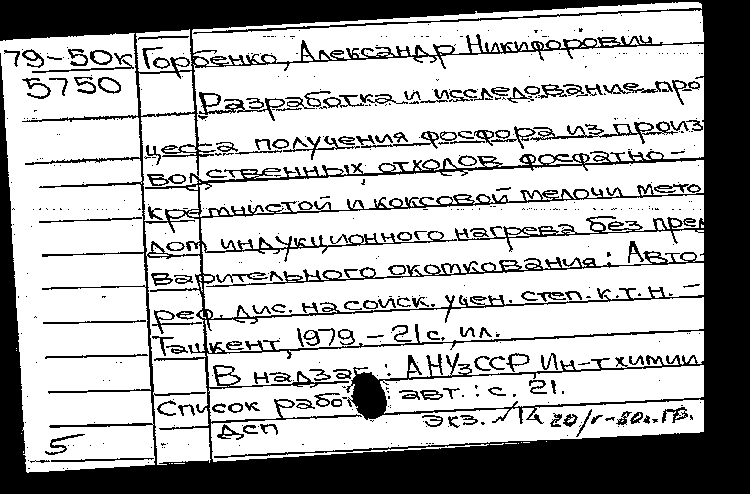 79-50к Горбенко, Александр Никифорович.
5750
Разработка и исследование про
цесса получения фосфора из произ
водственных отходов фосфатно-
кремнистой и коксовой мелочи мето
дом индукционного нагрева без пред
варительного окоткования: Авто-
реф. дис. на соиск. учен. степ. к.т.н. -
Ташкент, 1979. - 21 с., ил.
В надзаг: АНУзССР, Ин-т химии.
Список работ авт.: с. 21.
5 ДСП Экз. №14